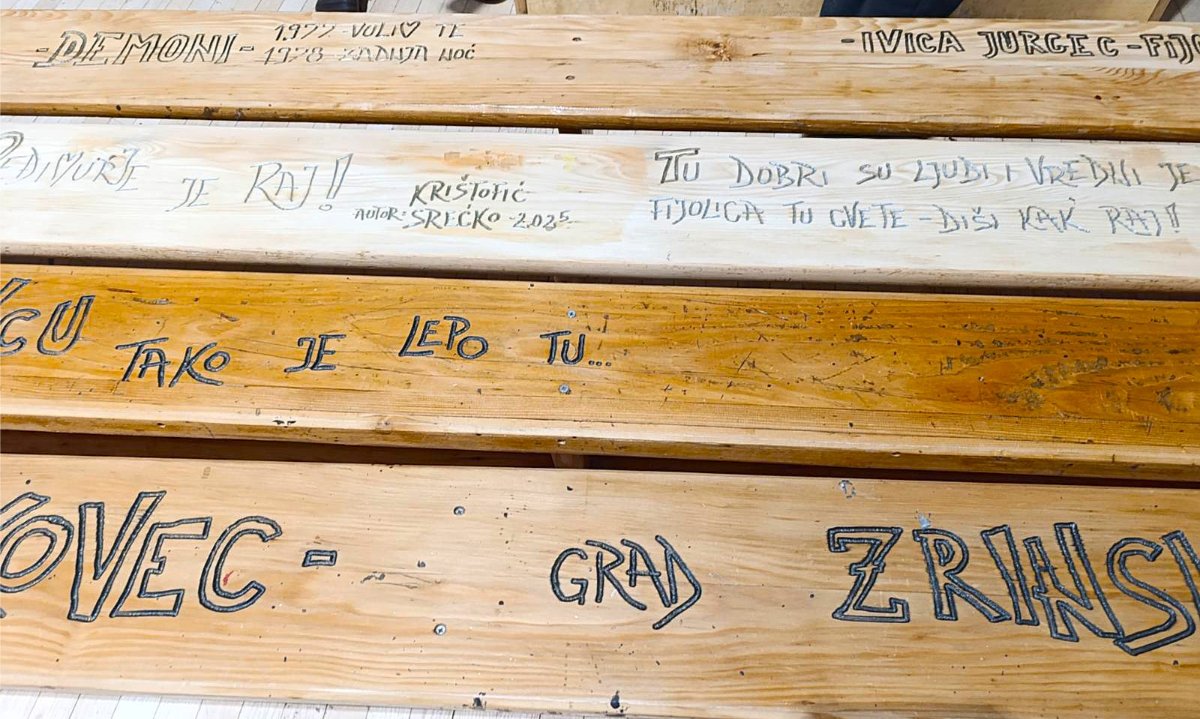 -DEMONI- 1977-VOLI♡ TE
1978-ZADNJA NOĆ
-IVICA JURGEC-FIJO
MEĐIMURJE JE RAJ!
KRIŠTOFIĆ
AUTOR: SREĆKO-2025
TU DOBRI SU LJUDI I VREDNI JE
FIJOLICA TU CVETE-DIŠI KAK RAJ!
CU TAKO JE LEPO TU...
KOVEC- GRAD ZRINSK